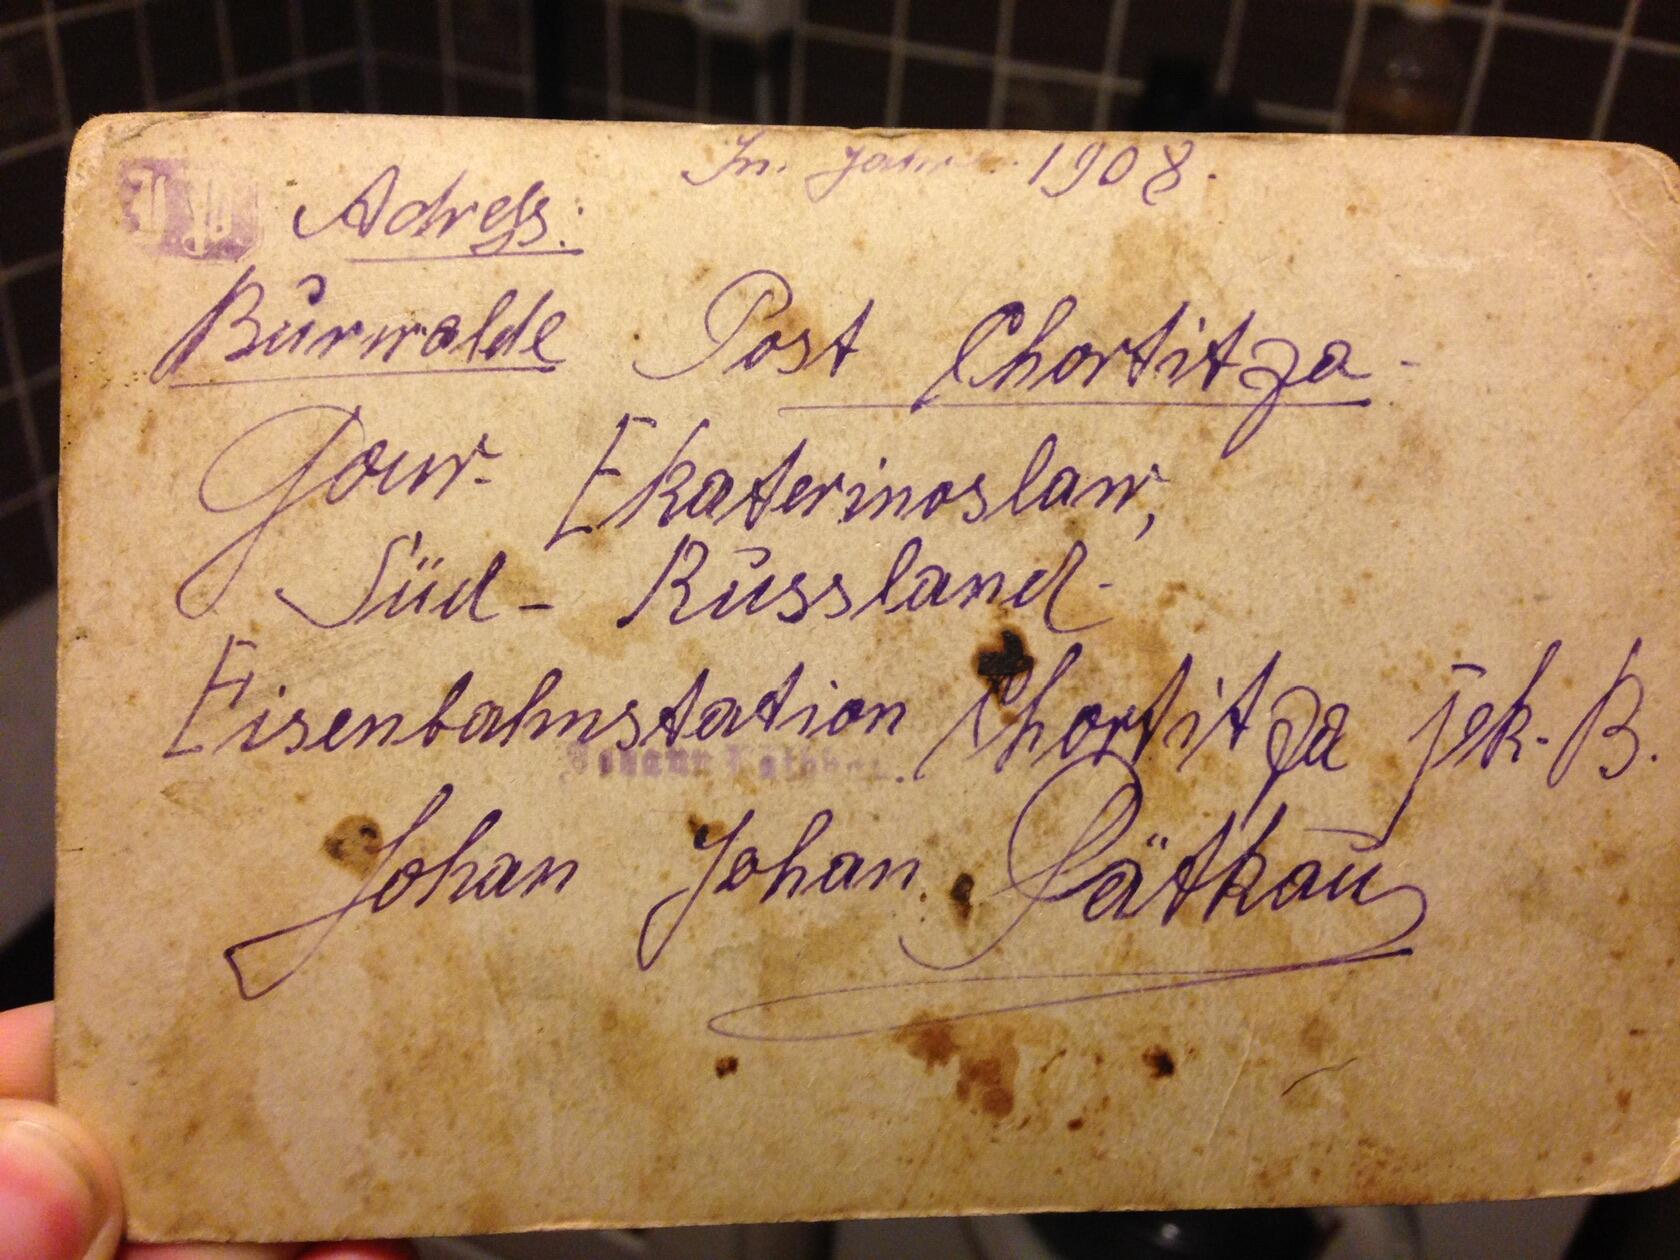 In. Jahre 1908.
Adress:
Burwalde Post Chortitza-
Gouv. Ekaterinoslaw,
Süd- Russland-
Eisenbahnstation Chortitza Jek. B.
Johann
Johan Johan Pätkau